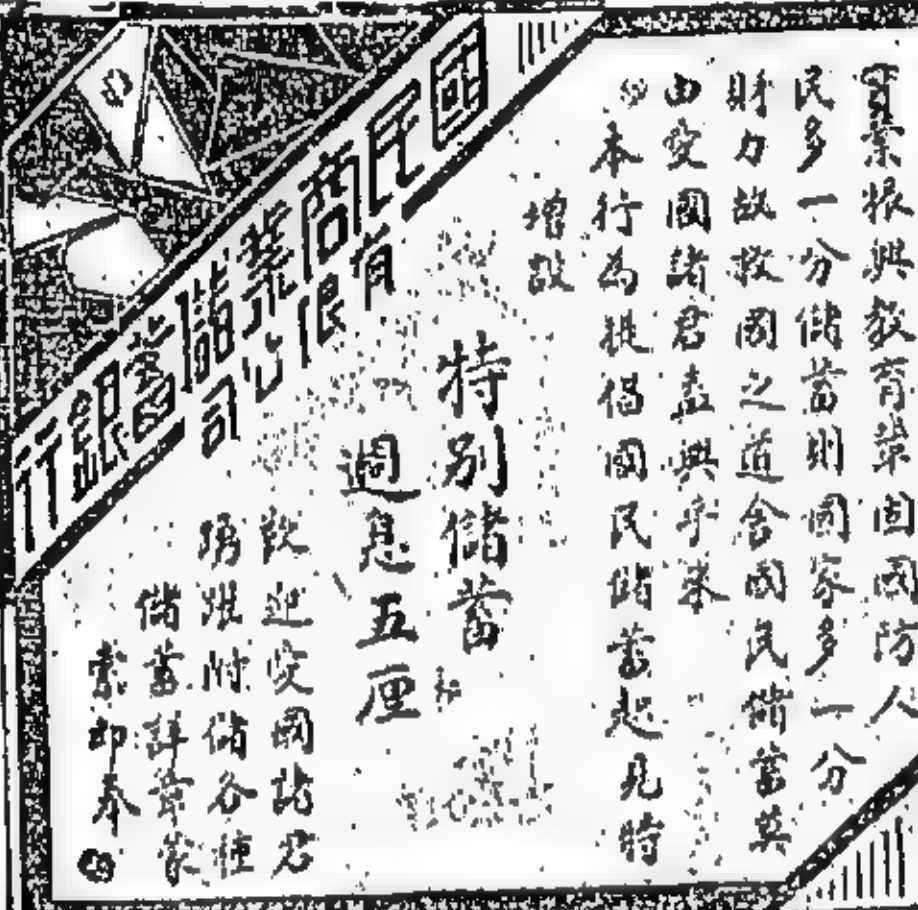 國民商業儲蓄銀行
有限公司
實業振興教育業固國防人
民多一分儲蓄則國家多一分
財力故救國之道舍國民儲蓄莫
由愛國諸君盍興乎來
本行為提倡國民儲蓄起見特
增設
特別儲蓄
週息五厘
歡迎愛國諸君
踴躍附儲各種
儲蓄詳章蒙
索即奉